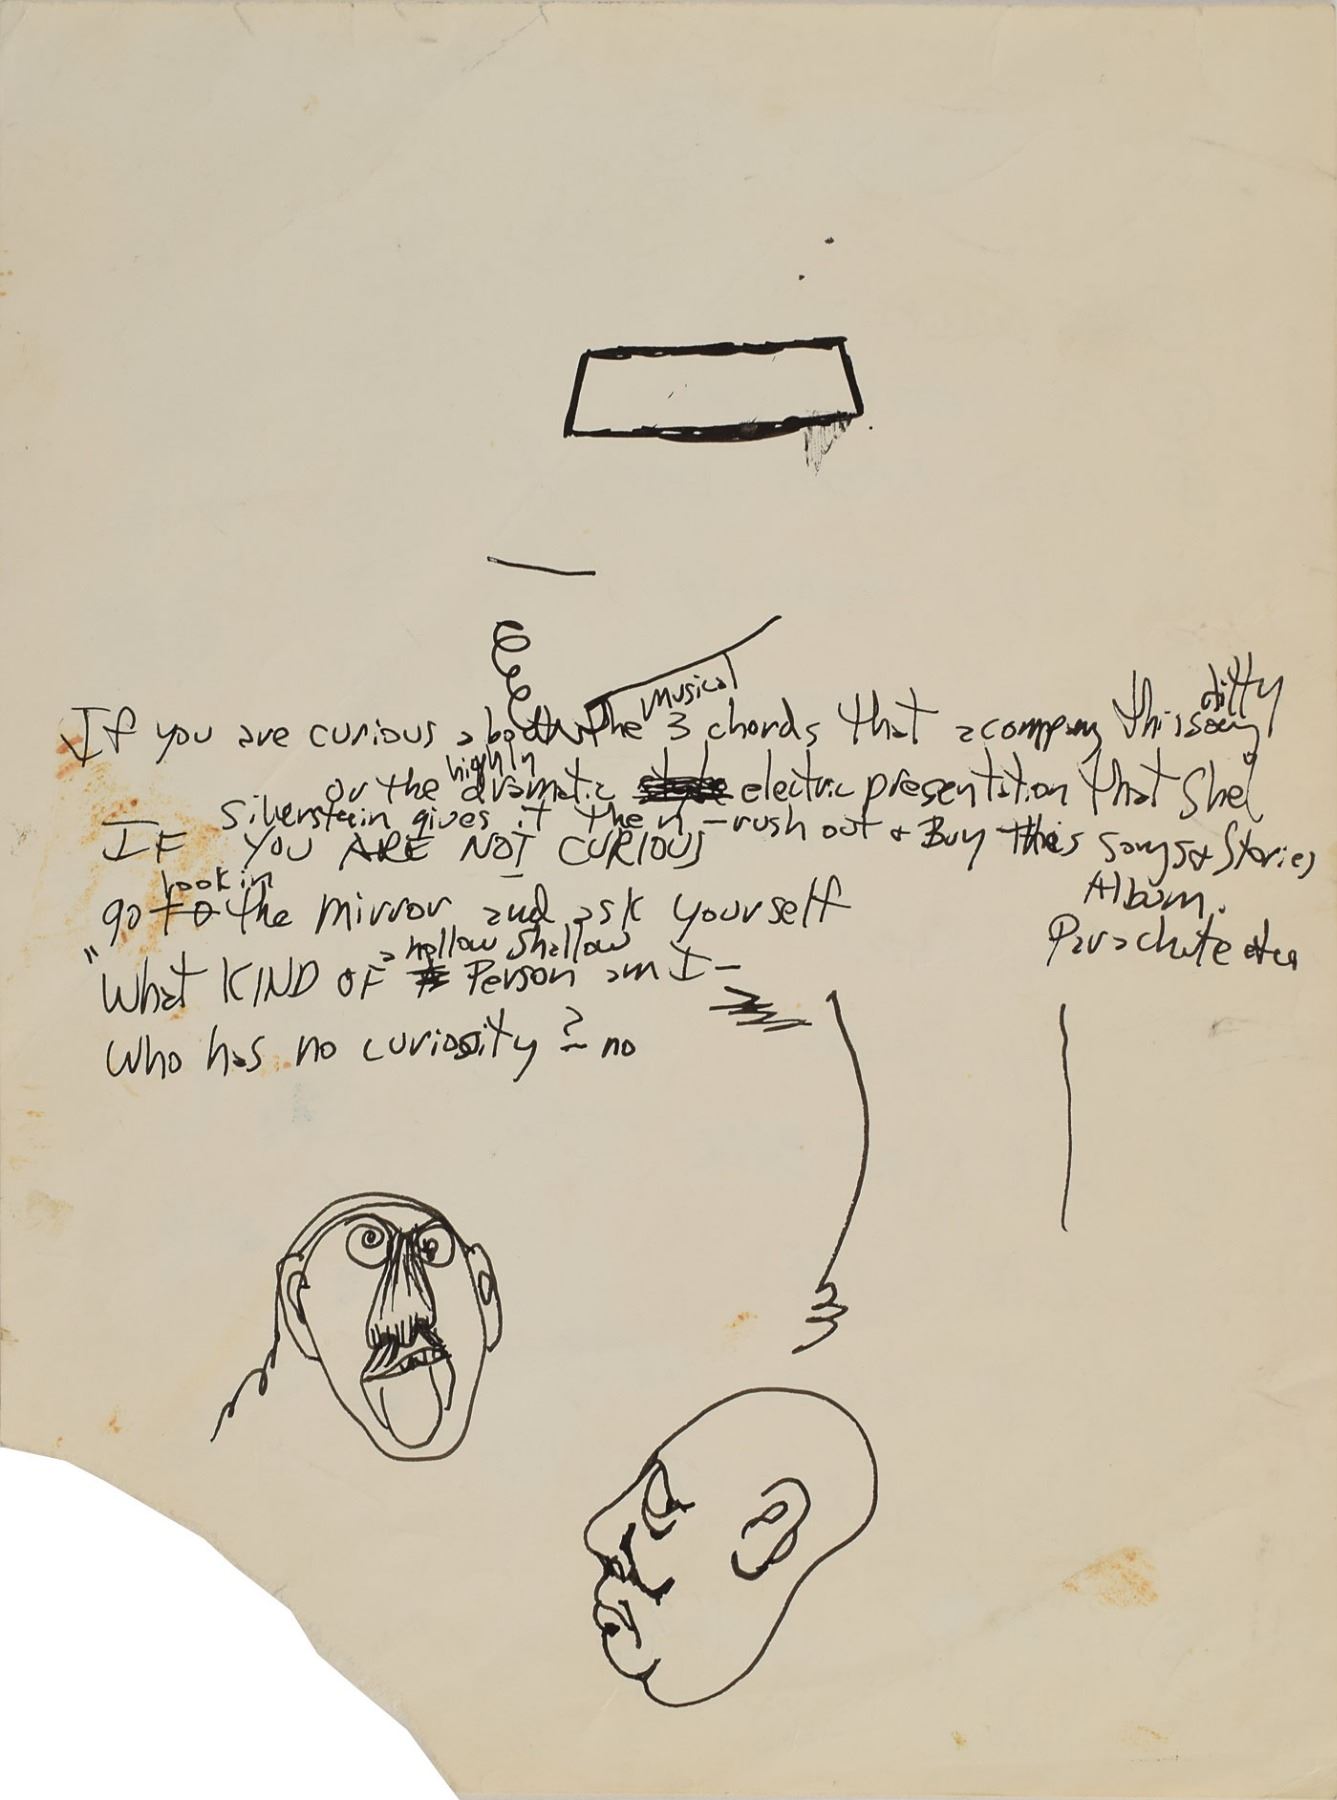 ditty
Musical
If you are curious about the 3 chords that acompany this song
highly
or the dramatic electric presentation that Shel
Silverstein gives it then - rush out & Buy this Songs & Stories
Album.
Parachute
IF YOU ARE NOT CURIOUS
look in
go to the mirror and ask yourself
a hollow shallow
"What KIND OF Person am I -
Who has no curiosity ? - no